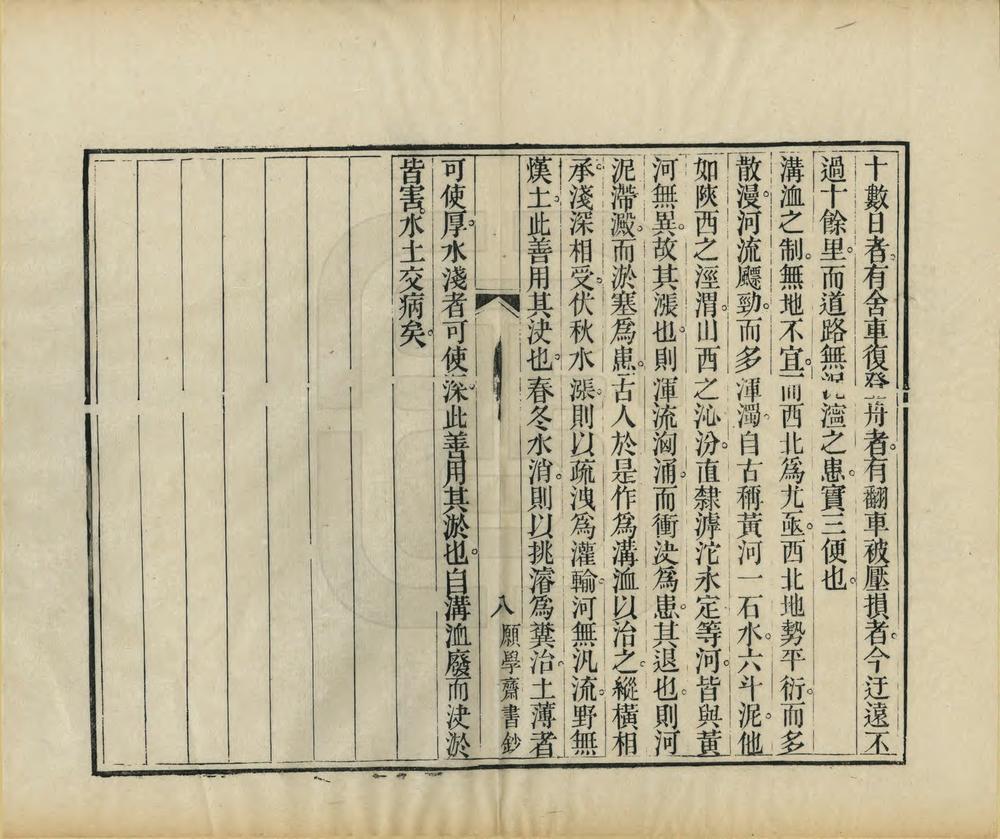 十數日者有舍車復登舟者有翻車被壓損者今迂遠不
過十餘里而道路無泥濘之患實三便也
溝洫之制無地不宜而西北爲尤亟西北地勢平衍而多
散漫河流飋勁而多渾濁自古稱黃河一石水六斗泥他
如陝西之涇渭山西之沁汾直隸滹沱永定等河皆與黃
河無異故其漲也則渾流洶涌而衝決爲患其退也則河
泥滯澱而淤塞爲患古人於是作爲溝洫以治之縱橫相
承淺深相受伏秋水漲則以疏洩爲灌輸河無汎流野無
熯土此善用其決也春冬水消則以挑濬爲糞治土薄者
八 願學齋書鈔
可使厚水淺者可使深此善用其淤也自溝洫廢而決淤
皆害水土交病矣